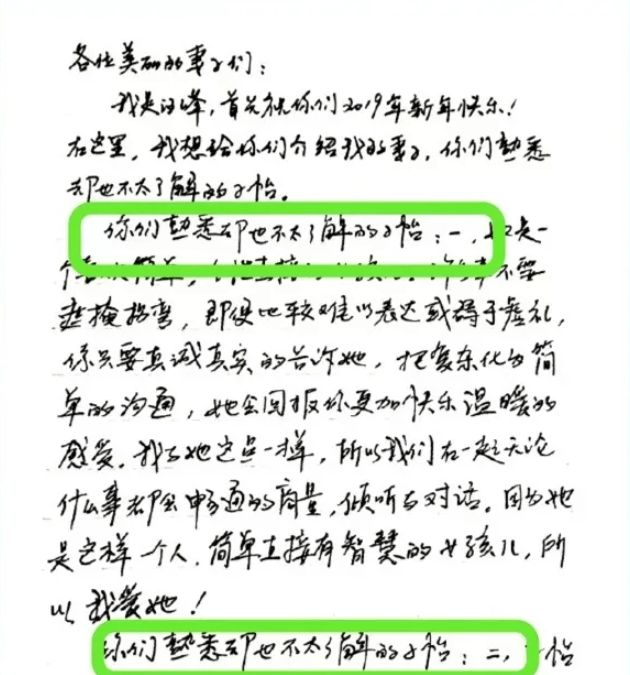 各位美丽的妻子们：
我是汪峰，首先祝你们2019年新年快乐！
在这里，我想给你们介绍我的妻子，你们熟悉
却也不太了解的子怡。
你们熟悉却也不太了解的子怡：一，她是一
个简单，不要
遮掩拐弯，即便比较难以表达或碍于虚礼，
你只要真诚真实的告诉她，把复杂化为简
单的沟通，她会回报你更加快乐温暖的
感受。我与她这点一样，所以我们在一起无论
什么事都会畅通的商量，倾听与对话。因为她
是这样一个人，简单直接有智慧的女孩儿，所
以我爱她！
你们熟悉却也不太了解的子怡：二，子怡